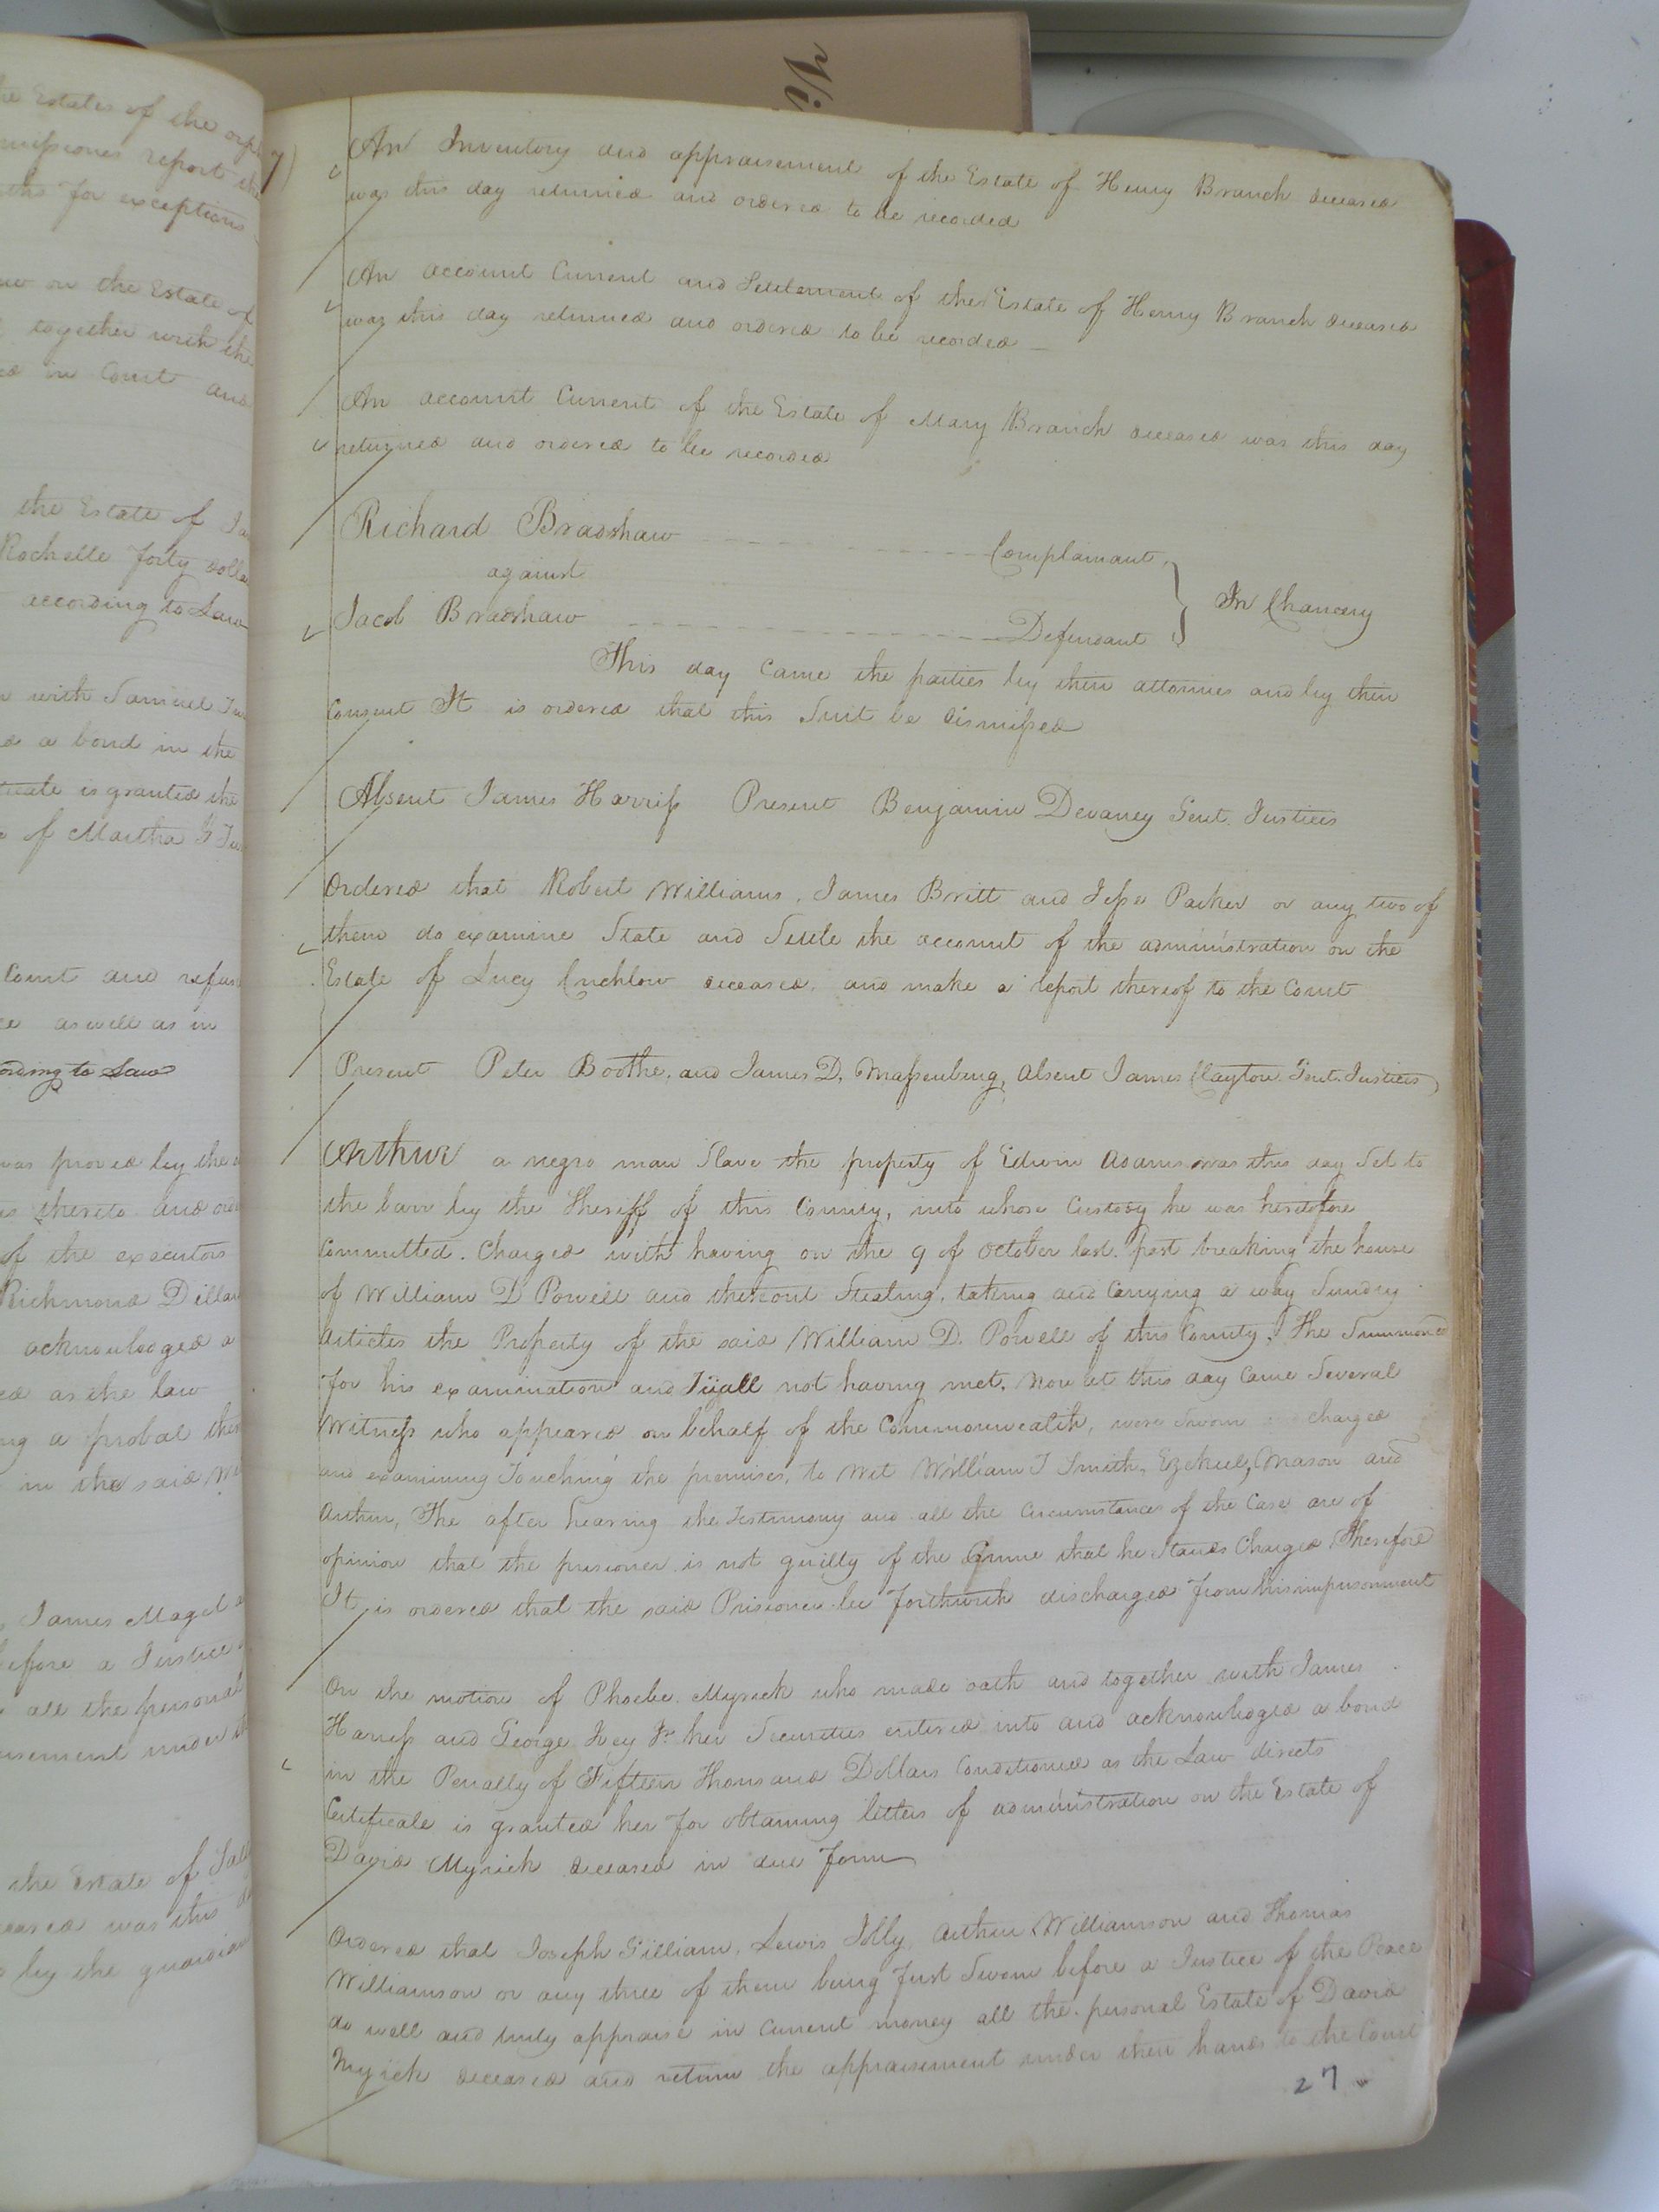 Vi
he Estates of the orp
report the
the for exceptions
on the Estate of
together with the
in Court and
the Estate of Ja
Rochelle forty dolla
according to Law
with Samuel
a bond in the
is granted the
of Martha
Court and refus
as well as in
ording to Law
was proved by the
thereto and
of the executors
Richmond Dilla
acknowledged a
as the law
a probat
in the said
James Magel
before a Justice
all the personal
under
the Estate of
was this
by the guardian
7)
An Inventory and appraisement of the Estate of Henry Branch deceased
was this day returned and ordered to be recorded
An account Current and Settlement of the Estate of Henry Branch deceased
was this day returned and ordered to be recorded —
An account Current of the Estate of Mary Branch deceased was this day
returned and ordered to be recorded
Richard Bradshaw Complainant
against
In Chancery
Jacob Bradshaw Defendant
This day Came the parties by their attornies and by their
Consent It is ordered that this Suit be dismissed
Absent James Harriss Present Benjamin Devaney Gent. Justices
Ordered that Robert Williams, James Britt and Jesse Parker or any two of
them do examine State and Settle the account of the administration on the
Estate of Lucy deceased, and make a report thereof to the Court
Present Peter Boothe, and James D. Massenburg, absent James Clayton Gent. Justices
Arthur a negro man Slave the property of Edwin Adams was this day Set to
the barr by the Sheriff of this County, into whose Custody he was heretofore
Committed. Charged with having on the 9 of October last past breaking the house
of William D Powell and thereout Stealing, taking and Carrying a way Sundry
articles the Property of the said William D. Powell of this County. The Summoned
for his examination and not having met, Now at this day Came Several
Witness who appeared on behalf of the Commonwealth, were Sworn charged
and examining Touching the premises, to Wit William J Smith, Ezekiel, Mason and
Arthur, The after hearing the Testimony and all the Circumstances of the Case are of
opinion that the prisioner is not guilty of the Crime that he Stands Charged Therefore
It is ordered that the said Prisioner be forthwith discharged from his imprisonment
On the motion of Phoebe Myrick who made oath and together with James
Harriss and George Key Jr her Securities entered into and acknowledged a bond
in the Penalty of Fifteen Thousand Dollars Conditioned as the Law directs
Certificate is granted her for obtaining letters of administration on the Estate of
David Myrick deceased in due form
Ordered that Joseph Gilliam, Lewis Jolly, Arthur Williamson and Thomas
Williamson or any three of them being first Sworn before a Justice of the Peace
do well and truly appraise in Current money all the personal Estate of David
Myrick deceased and return the appraisement under their hands to the Court
27